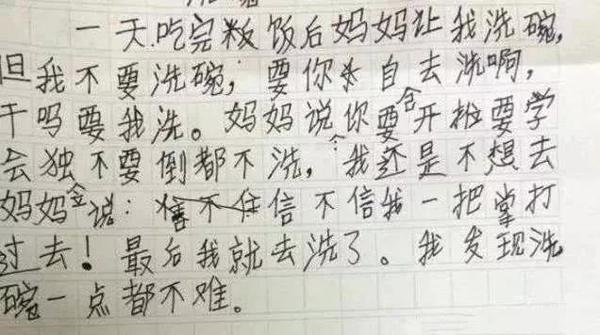 一天吃完粄饭后妈妈让我洗碗,
但我不要洗碗,要你自去洗啊,
干吗要我洗。妈妈说你要合开推要学
会独不要倒都不洗,我还是不想去
妈妈说:信不信我一把掌打
过去!最后我就去洗了。我发现洗
碗一点都不难。